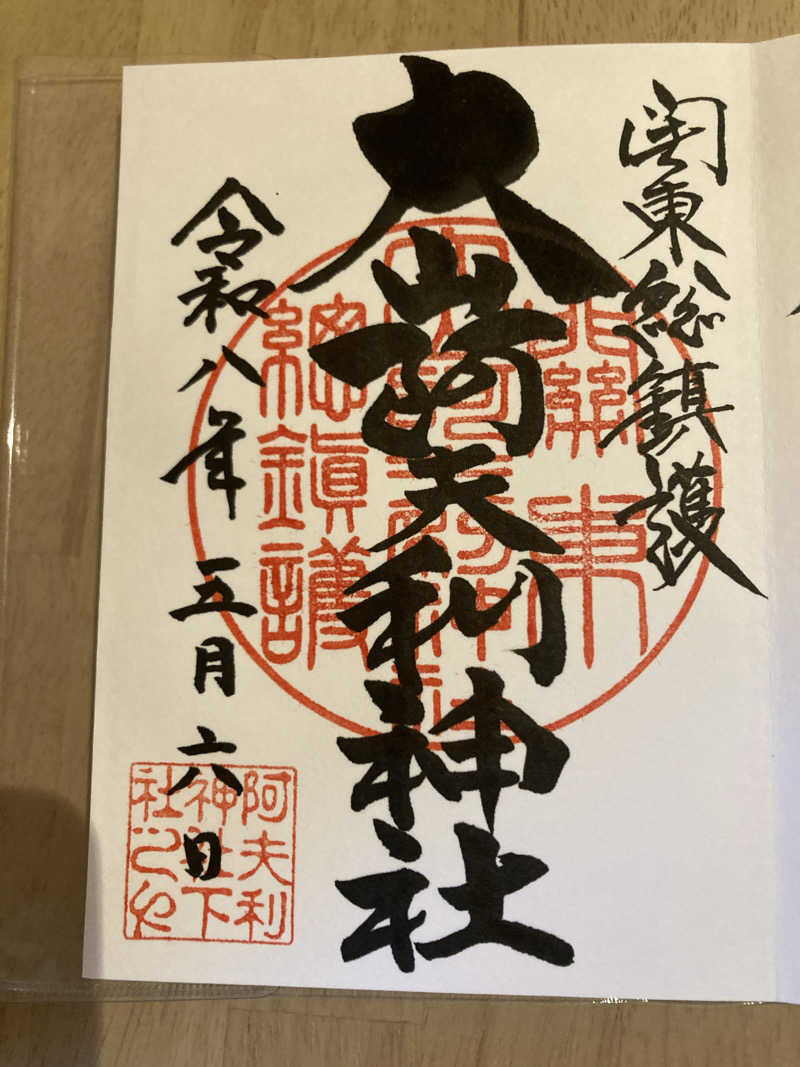 関東総鎮護
大山阿夫利神社
令和八年五月六日
関東
総鎮護
阿夫利
神社下
社之也